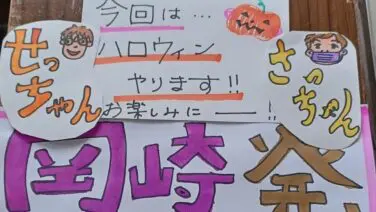 今回は…
ハロウィン
やります!!
お楽しみに――!
せっちゃん
さっちゃん
岡崎発